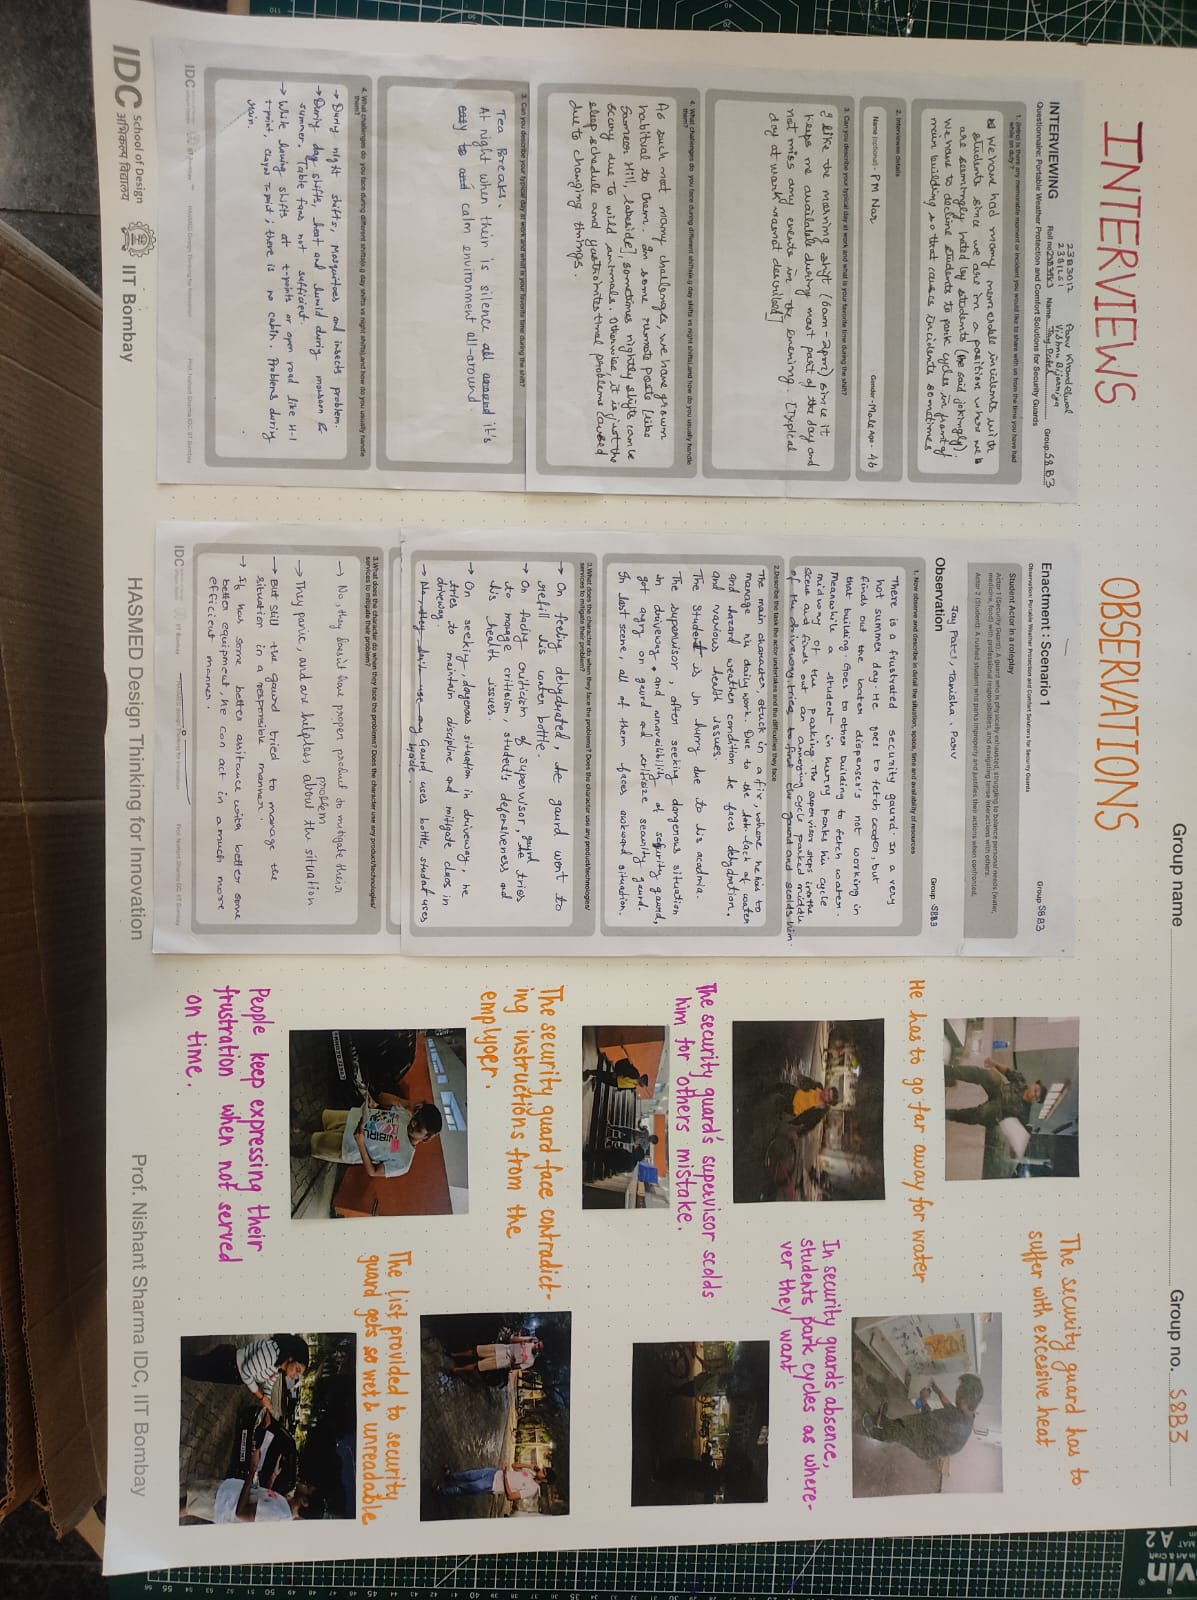 Group name
Group no. S8B3
INTERVIEWS
INTERVIEWING
Questionnaire: Portable Weather Protection and Comfort Solutions for Security Guards
Group: S8B3
1. (Intro) Is there any memorable moment or incident you would like to share with us from the time you have had
while on duty?
we have had many memorable incidents with
students since we are in a position where we
are seemingly hated by students (he said jokingly).
We have to decline students to park cycles in front of
main building so that causes incidents sometimes
2. Interviewee details
Name (optional) - PM Nar
Gender - Male Age - 46
3. Can you describe your typical day at work and what is your favorite time during the shift?
I like the morning shift (6am-2pm) since it
keeps me available during most part of the day and
not miss any events in the evening. [Typical
day at work wasnot described]
4. What challenges do you face during different shifts(e.g day shifts vs night shifts),and how do you usually handle
them?
As such not many challenges, we have grown
habitual to them. In some remote posts [like
Sameer Hill, lakeside], sometimes nightly shifts can be
scary due to wild animals. Otherwise, it is just the
sleep schedule and gastrointestinal problems caused
due to changing timings.
3. Can you describe your typical day at work and what is your favorite time during the shift?
Tea Breaks.
At night when their is silence all around it's
calm environment all-around.
4. What challenges do you face during different shifts(e.g day shifts vs night shifts),and how do you usually handle
them?
→ During night shifts, Mosquitoes and insects problem.
→ During day shifts, heat and humid during monsoon &
summer. Table fans not sufficient.
→ While having shifts at t-points or open road like H-1
t-point, T-point; there is no cabin. Problems during
rain.
IDC
OBSERVATIONS
Enactment : Scenario 1
Observation: Portable Weather Protection and Comfort Solutions for Security Guards
Group S8B3
Student Actor in a roleplay
Actor 1 (Security Guard): A guard who is physically exhausted, struggling to balance personal needs (water,
medicine, food) with professional responsibilities, and navigating tense interactions with others.
Actor 2 (Student): A rushed student who parks improperly and justifies their actions when confronted.
Jay Patel, Tanishka, Parv
Observation
Group S8B3
1. Now observe and describe in detail the situation, space, time and availability of resources
There is a frustrated security gaurd. In a very
hot summer day. He goes to fetch water, but
finds out the water dispenser's not working in
that building. Goes to other building to fetch water.
Meanwhile a student in hurry parks his cycle
midway of the parking. The supervisor steps into the
scene and finds out an annoying cycle parked middle
of the driveway, tries to find the guard and scolds him.
2.Describe the task the actor undertakes and the difficulties they face
The main character, stuck in a fix, where he has to
manage his duties work. Due to the lack of water
and hazard weather condition he faces dehydration.
and various health issues.
The student is in hurry due to his acadmia.
The supervisor, often seeking dangerous situation
in driveway and unavaibility of security gaurd,
got angry on gaurd and critisize security gaurd.
In last scene, all of them faces awkward situation.
3.What does the character do when they face the problems? Does the character use any product/technologies/
services to mitigate their problem?
→ On feeling dehydrated, the gaurd went to
refill his water bottle
→ On facing criticism of supervisor, gaurd tries
to manage criticism, student's defensiveness and
his health issues.
→ On seeking, dagerous situation in driveway, he
tries to maintain discipline and mitigate chaos in
driveway.
→ Gaurd uses bottle, student uses
3.What does the character do when they face the problems? Does the character use any product/technologies/
services to mitigate their problem?
→ No, they doesn't have proper product to mitigate their
problem
→ They panic, and are helpless about the situation
→ But still the gaurd tried to manage the
situation in a responsible manner.
→ If he has some better assitance with better some
better equipment, he can act in a much more
efficient manner.
IDC
The security guard has to
suffer with excessive heat
He has to go far away for water
In security guard's absence,
students park cycles as where-
ver they want
The security guard's supervisor scolds
him for others mistake.
The security guard face contradict-
ing instructions from the
emplyoer.
The list provided to security
guard gets so wet & unreadable
People keep expressing their
frustration when not served
on time.
IDC School of Design
अभिकल्प विद्यालय
IIT Bombay
HASMED Design Thinking for Innovation
Prof. Nishant Sharma IDC, IIT Bombay
A2